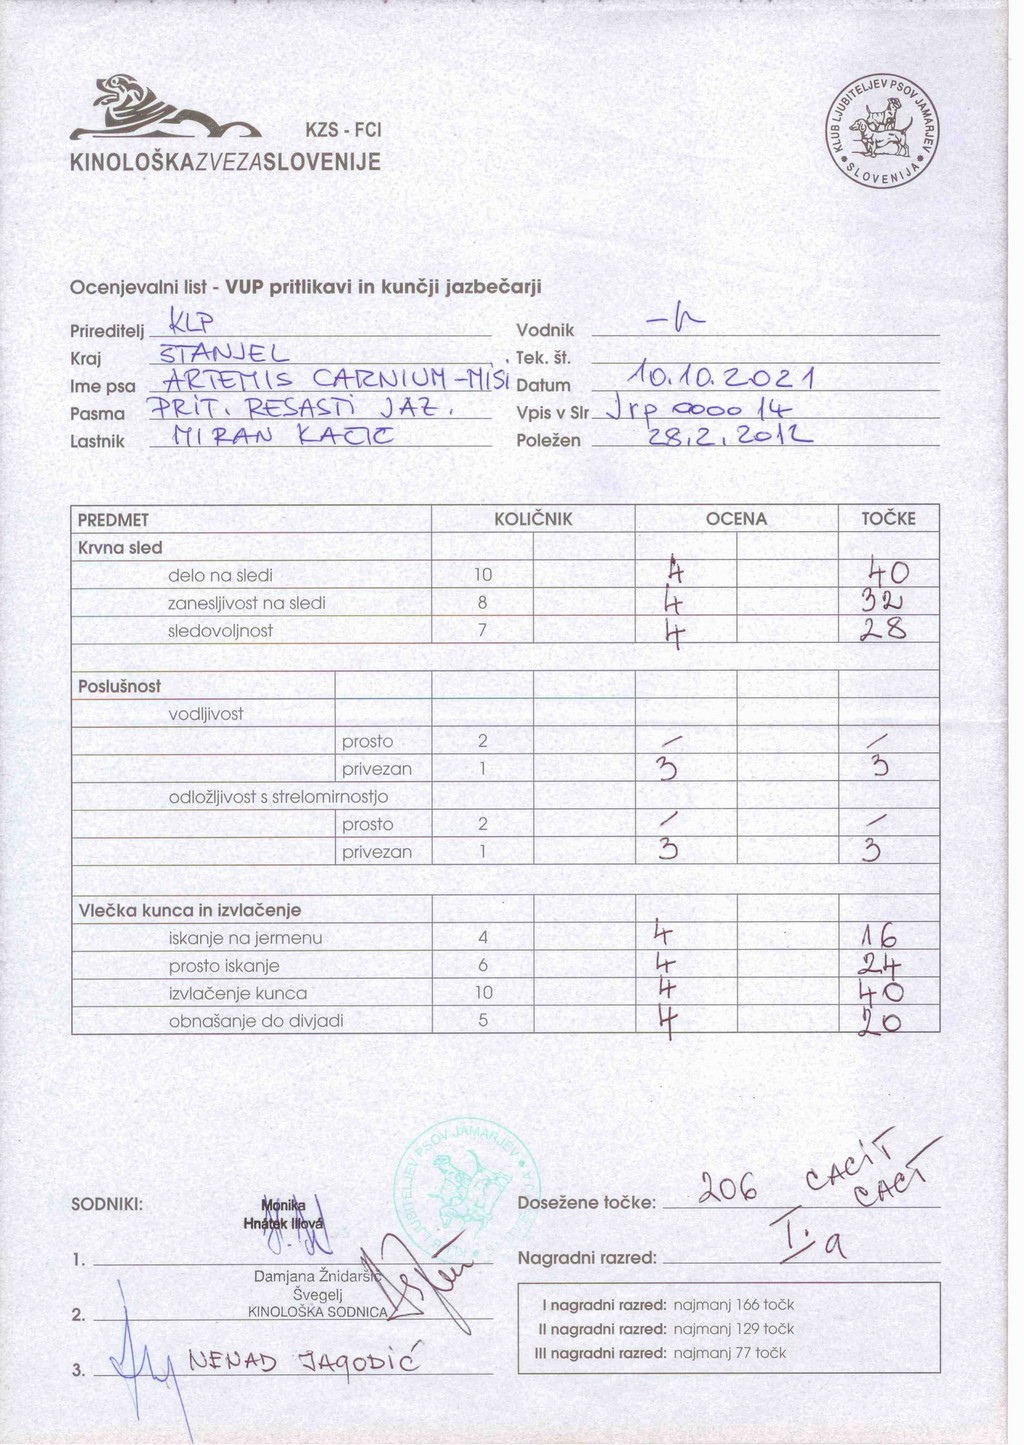 KZS - FCI
KINOLOŠKAZVEZASLOVENIJE
KLUB LJUBITELJEV PSOV JAMARJEV
SLOVENIJA
Ocenjevalni list - VUP pritlikavi in kunčji jazbečarji
Prireditelj KLP Vodnik -h-
Kraj ŠTANJEL Tek. št.
Ime psa ARTEMIS CARNIUM-MIŠI Datum 10.10.2021
Pasma PRIT. RESASTI JAZ. Vpis v Slr Jrp 000014
Lastnik MIRAN KAČIČ Poležen 28.2.2012
PREDMET KOLIČNIK OCENA TOČKE
Krvna sled
delo na sledi 10 4 40
zanesljivost na sledi 8 4 32
sledovoljnost 7 4 28
Poslušnost
vodljivost
prosto 2 / /
privezan 1 3 3
odložljivost s strelomirnostjo
prosto 2 / /
privezan 1 3 3
Vlečka kunca in izvlačenje
iskanje na jermenu 4 4 16
prosto iskanje 6 4 24
izvlačenje kunca 10 4 40
obnašanje do divjadi 5 4 20
SODNIKI: Monika Dosežene točke: 206 CACIT
Hnátek Illová CACT
1. Nagradni razred: I. a
Damjana Žnidaršič
Švegelj
2. KINOLOŠKA SODNICA
3. NENAD JAGODIĆ
I nagradni razred: najmanj 166 točk
II nagradni razred: najmanj 129 točk
III nagradni razred: najmanj 77 točk